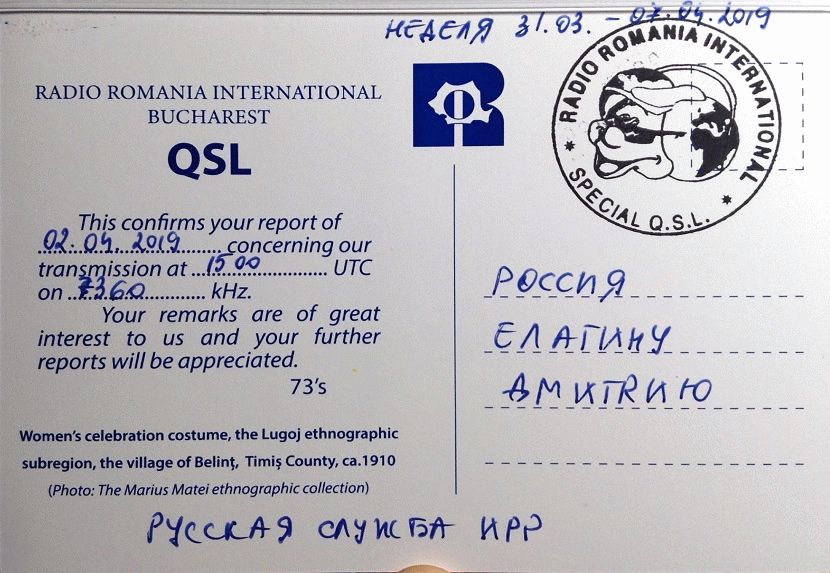 НЕДЕЛЯ 31.03. – 07.04.2019
RADIO ROMANIA INTERNATIONAL
BUCHAREST
QSL
RADIO ROMANIA INTERNATIONAL
* SPECIAL Q.S.L. *
This confirms your report of
02.04.2019 concerning our
transmission at 1500 UTC
on 7360 kHz.
Your remarks are of great
interest to us and your further
reports will be appreciated.
73's
РОССИЯ
ЕЛАГИНУ
ДМИТРИЮ
Women's celebration costume, the Lugoj ethnographic
subregion, the village of Belinţ, Timiş County, ca.1910
(Photo: The Marius Matei ethnographic collection)
РУССКАЯ СЛУЖБА ИРР